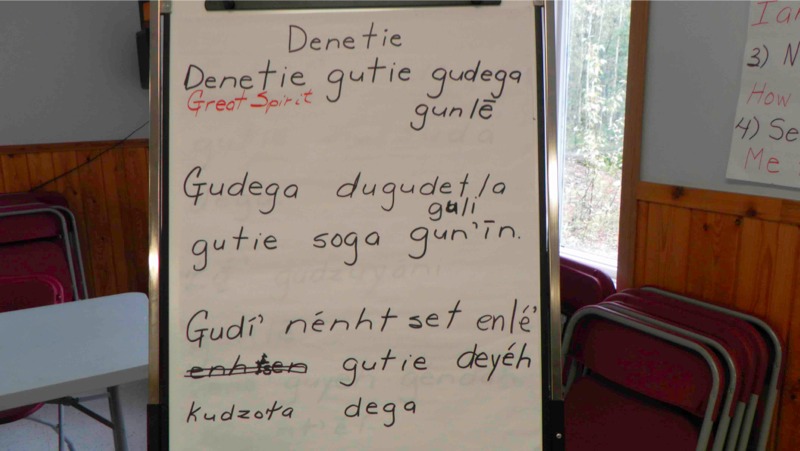 Denetie
Denetie gutie gudega
Great Spirit
gunlē
Gudega dugudetła
guli
gutie soga gun'īn.
Gudí' nénht set enlé'
gutie deyéh
kudzoła dega
3) N
How
4) Se
Me